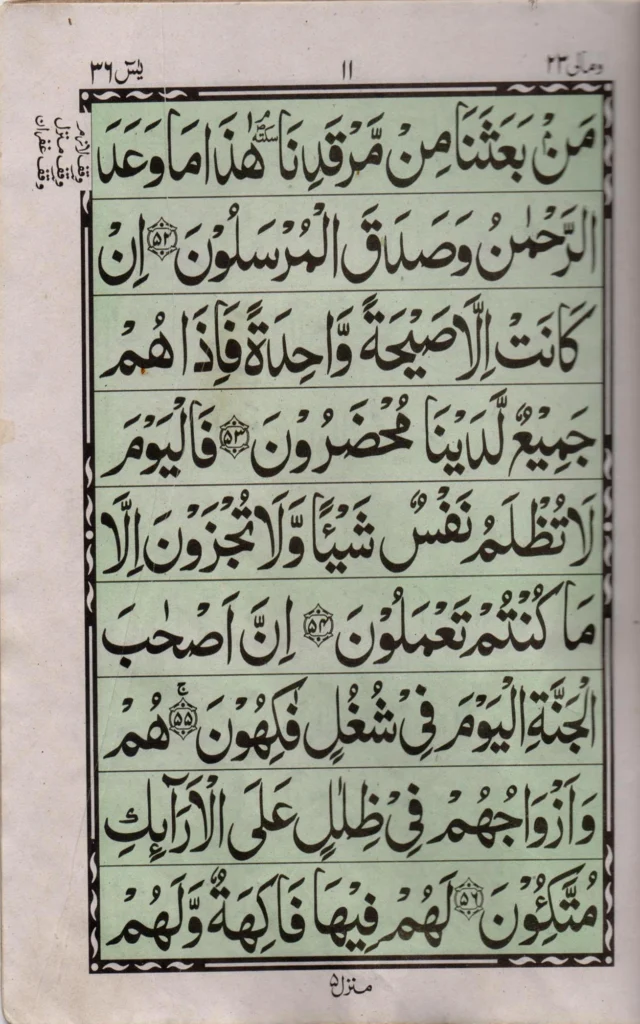 ومالی ۲۳ ۱۱ یٰسٓ ۳۶
مَنْۢ بَعَثَنَا مِنْ مَّرْقَدِنَا ۘ ؐ سكتة هٰذَا مَا وَعَدَ
وقف لازم
وقف منزل
وقف غفران
الرَّحْمٰنُ وَصَدَقَ الْمُرْسَلُوْنَ ﴿۵۲﴾ اِنْ
كَانَتْ اِلَّا صَيْحَةً وَّاحِدَةً فَاِذَا هُمْ
جَمِيْعٌ لَّدَيْنَا مُحْضَرُوْنَ ﴿۵۳﴾ فَالْيَوْمَ
لَا تُظْلَمُ نَفْسٌ شَيْـًٔا وَّلَا تُجْزَوْنَ اِلَّا
مَا كُنْتُمْ تَعْمَلُوْنَ ﴿۵۴﴾ اِنَّ اَصْحٰبَ
الْجَنَّةِ الْيَوْمَ فِيْ شُغُلٍ فٰكِهُوْنَ ۚ ﴿۵۵﴾ هُمْ
وَاَزْوَاجُهُمْ فِيْ ظِلٰلٍ عَلَى الْاَرَآئِكِ
مُتَّكِئُوْنَ ﴿۵۶﴾ لَهُمْ فِيْهَا فَاكِهَةٌ وَّلَهُمْ
منزل ۵